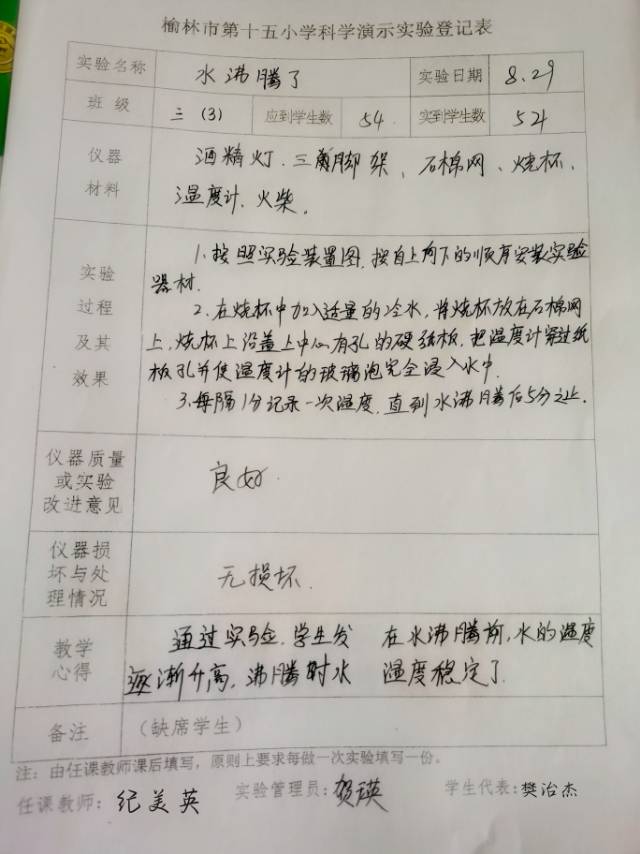 榆林市第十五小学科学演示实验登记表
实验名称 水沸腾了 实验日期 8.29
班级 三(3) 应到学生数 54 实到学生数 54
仪器材料 酒精灯、三角脚架、石棉网、烧杯、
温度计、火柴。
实验过程及其效果
1.按照实验装置图,按自上向下的顺序安装实验
器材.
2.在烧杯中加入适量的冷水,将烧杯放在石棉网
上,烧杯上沿盖上中心有孔的硬纸板,把温度计穿过纸
板孔并使温度计的玻璃泡完全浸入水中.
3.每隔1分记录一次温度,直到水沸腾后5分之止.
仪器质量或实验改进意见 良好.
仪器损坏与处理情况 无损坏.
教学心得 通过实验,学生发 在水沸腾前,水的温度
逐渐升高,沸腾时水 温度稳定了.
备注 (缺席学生)
注:由任课教师课后填写,原则上要求每做一次实验填写一份。
任课教师:纪美英 实验管理员:贺瑛 学生代表:樊治杰